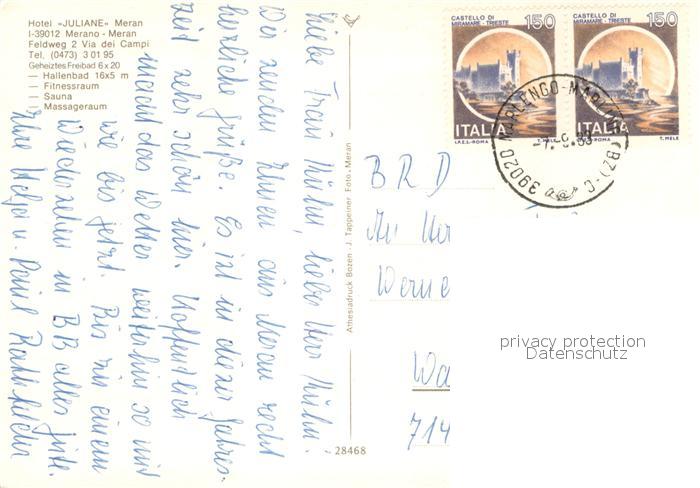 Hotel «JULIANE» Meran
I-39012 Merano - Meran
Feldweg 2 Via dei Campi
Tel. (0473) 3 01 95
Geheiztes Freibad 6x20
— Hallenbad 16x5 m
— Fitnessraum
— Sauna
— Massageraum
Liebe Frau Kühn, lieber Herr Kühn.
Wir senden Ihnen aus Meran recht
herzliche Grüße. Es ist in dieser Jahres-
zeit sehr schön hier. Hoffentlich
macht das Wetter weiterhin so mit
wie bis jetzt. Bis zu einem
Wiedersehen in BB alles Gute.
Ihre Helga u. Paul
Athesiadruck Bozen - J. Tappeiner Foto - Meran
28468
CASTELLO DI
MIRAMARE - TRIESTE
150
ITALIA
I.P.Z.S.-ROMA
T. MELE
CASTELLO DI
MIRAMARE - TRIESTE
150
ITALIA
I.P.Z.S.-ROMA
T. MELE
39020 MARLENGO-MARLING (BZ)-C
BRD
An
Werne
Wa
714
privacy protection
Datenschutz